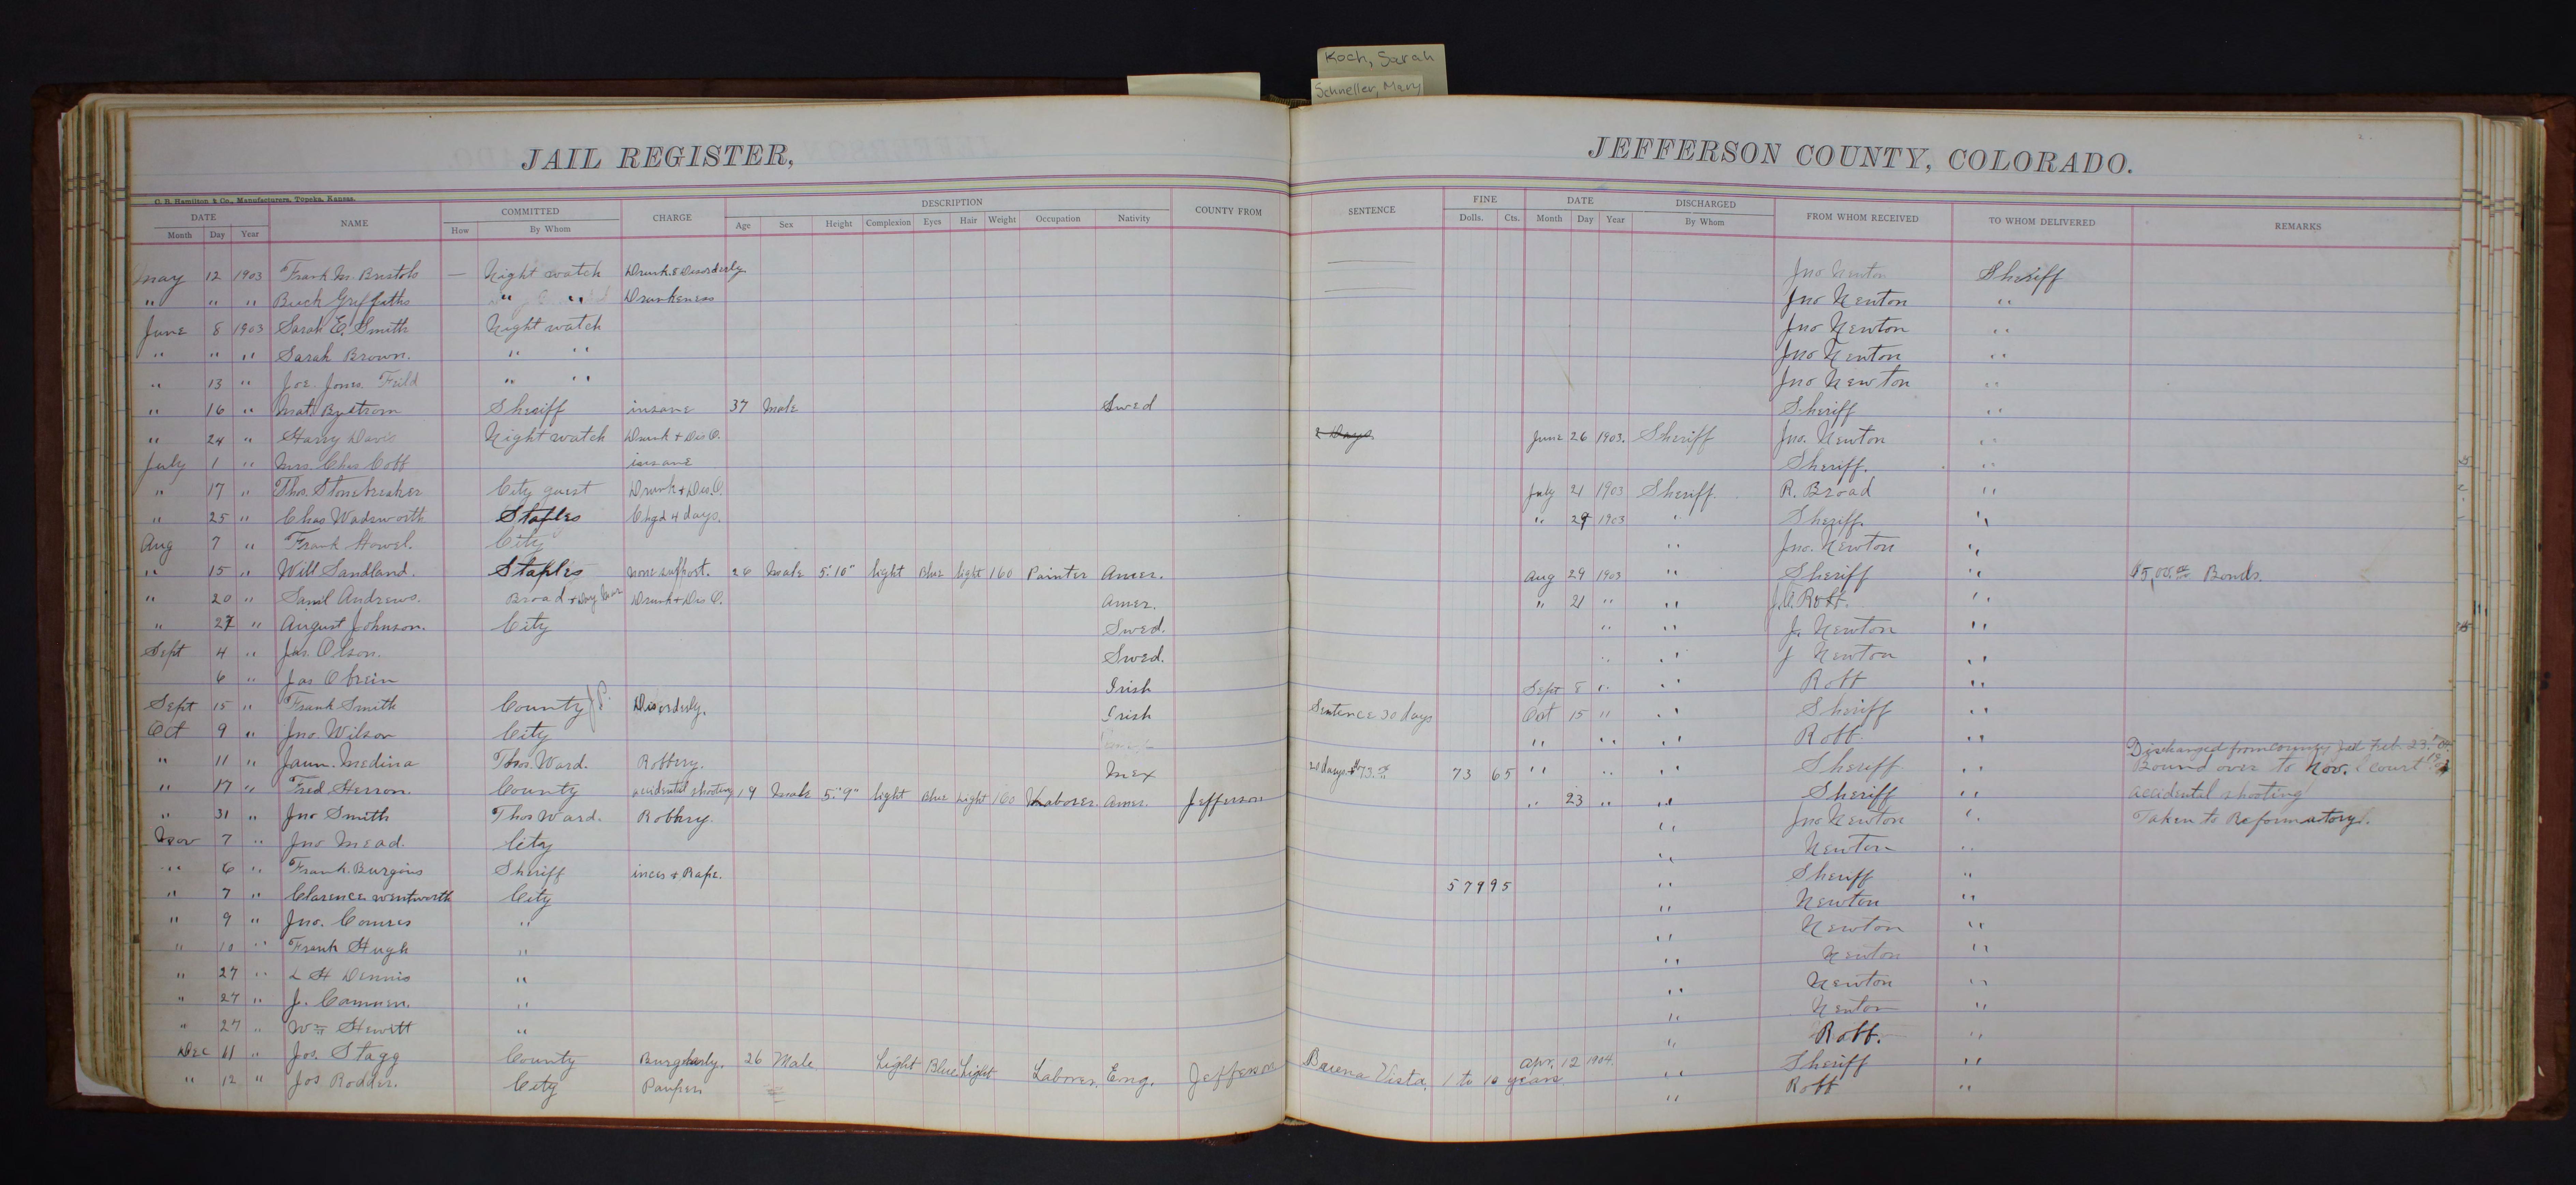 Koch, Sarah
Schneller, Mary
JAIL REGISTER,
JEFFERSON COUNTY, COLORADO.
C. B. Hamilton & Co., Manufacturers, Topeka, Kansas.
DATE NAME COMMITTED CHARGE DESCRIPTION COUNTY FROM SENTENCE FINE DATE DISCHARGED FROM WHOM RECEIVED TO WHOM DELIVERED REMARKS
Month Day Year How By Whom Age Sex Height Complexion Eyes Hair Weight Occupation Nativity Dolls. Cts. Month Day Year By Whom
May 12 1903 Frank M. Bristols — Night watch Drunk & Disorderly Jno Newton Sheriff
" " " Buck Griffiths " " Drunkeness Jno Newton "
June 8 1903 Sarah E. Smith Night watch Jno Newton "
" " " Sarah Brown. " " Jno Newton "
" 13 " Joe. Jones. Feild " " Jno Newton "
" 16 " Mat. Bystrom Sheriff insane 37 Male Swed Sheriff "
" 24 " Harry Davis Night watch Drunk + Dis C. 2 Days. June 26 1903. Sheriff Jno. Newton "
July 1 " Mrs. Chas Cobb insane Sheriff. "
" 17 " Thos. Stonebreaker City guest Drunk + Dis. C. July 21 1903 Sheriff. R. Broad "
" 25 " Chas Wadsworth Staples Chgd 4 days. " 29 1903 " Sheriff. "
Aug 7 " Frank Howel. City " Jno. Newton "
" 15 " Will Sandland. Staples none support. 26 Male 5'.10" light Blue light 160 Painter Amer. Aug 29 1903 " Sheriff " $5,00.00 Bonds.
" 20 " Saml Andrews. Broad + Day Drunk + Dis C. Amer. " 21 " " J.C. Robb. "
" 27 " August Johnson. City Swed. " " J. Newton "
Sept 4 " Jas. Olson. Swed. " " J Newton "
6 " Jas Obrein Irish Sept 8 " " Robb "
Sept 15 " Frank Smith County J.P. Disorderly. Irish Sentence 30 days Oct 15 " " Sheriff "
Oct 9 " Jno. Wilson City " " " Robb. "
Discharged from County Jail Feb. 23.
" 11 " Jaun. Medina Thos. Ward. Robbery. Mex 20 days. $73. 73 65 " " " Sheriff " Bound over to Nov. court
" 17 " Fred Herron. County accidental shooting 19 Male 5'."9" light Blue light 160 Laborer. Amer. Jefferson " 23 " " Sheriff " accidental shooting
" 31 " Jno Smith Thos Ward. Robbry. " Jno Newton " Taken to Reformatory.
Nov 7 " Jno Mead. City " Newton "
" 6 " Frank. Burgins Sheriff inces + Rape. 579 95 " Sheriff "
" 7 " Clarence wentworth City " Newton "
" 9 " Jno. Comres " " Newton "
" 10 " Frank Hugh " " Newton "
" 27 " L H Dennis " " Newton "
" 27 " J. Cammen. " " Newton "
" 27 " Wm Hewitt " " Robb. "
Dec 11 " Jos. Stagg County Burgularly. 26 Male Light Blue Light Laborer. Eng. Jefferson Bauena Vista. 1 to 10 years. Apr. 12 1904. " Sheriff "
" 12 " Jos Rodder. City Pauper " Robb "